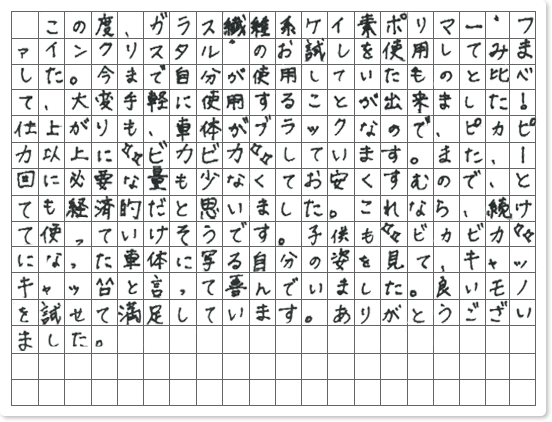 この度、ガラス繊維系ケイ素ポリマー“フ
ァインクリスタル”のお試しを使用してみま
した。今まで自分が使用していたものと比べ
て、大変手軽に使用することが出来ました！
仕上がりも、車体がブラックなので、ピカピ
カ以上に〝ビカビカ〝しています。また、１
回に必要な量も少なくてお安くすむので、と
ても経済的だと思いました。これなら、続け
て使っていけそうです。子供も〝ビカビカ〝
になった車体に写る自分の姿を見て、キャッ
キャッ笞と言って喜んでいました。良いモノ
を試せて満足しています。ありがとうござい
ました。